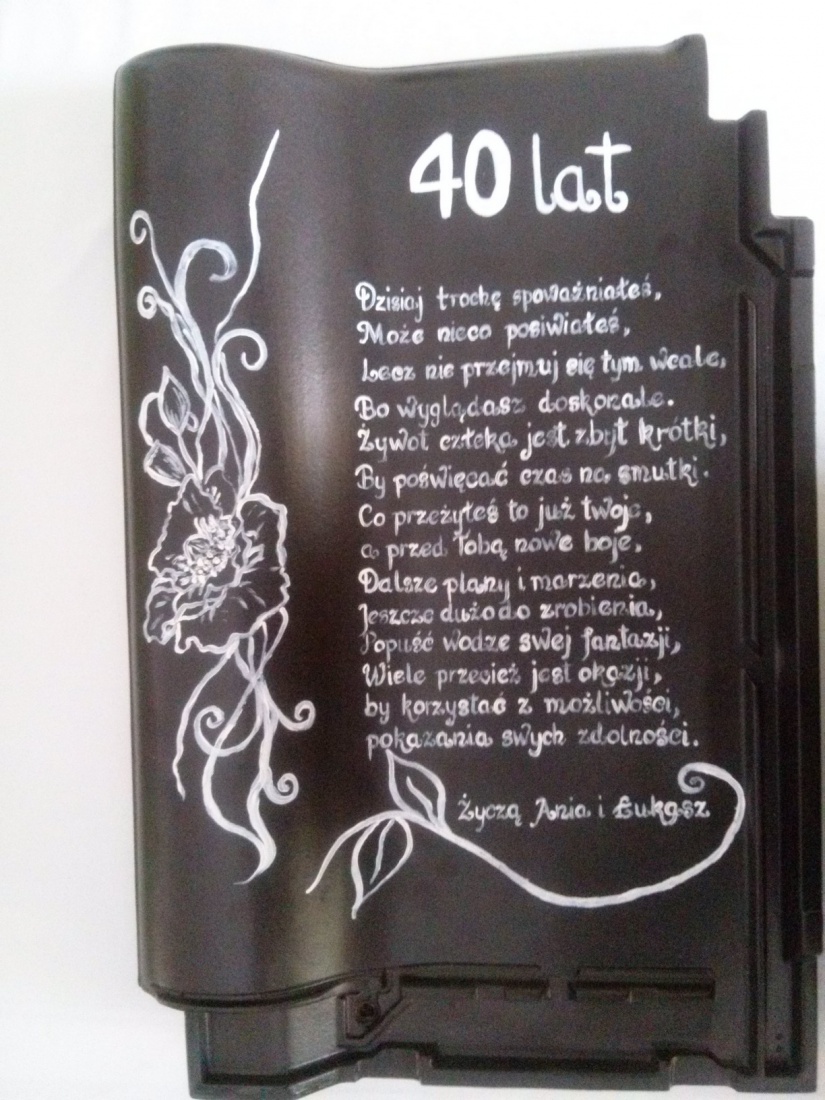 40 lat
Dzisiaj trochę spoważniałeś,
Może nieco posiwiałeś,
Lecz nie przejmuj się tym wcale,
Bo wyglądasz doskonale.
Żywot człeka jest zbyt krótki,
By poświęcać czas na smutki.
Co przeżyłeś to już twoje,
a przed Tobą nowe boje,
Dalsze plany i marzenia,
Jeszcze dużo do zrobienia,
Popuść wodze swej fantazji,
Wiele przecież jest okazji,
by korzystać z możliwości,
pokazania swych zdolności.
Życzą Ania i Łukasz